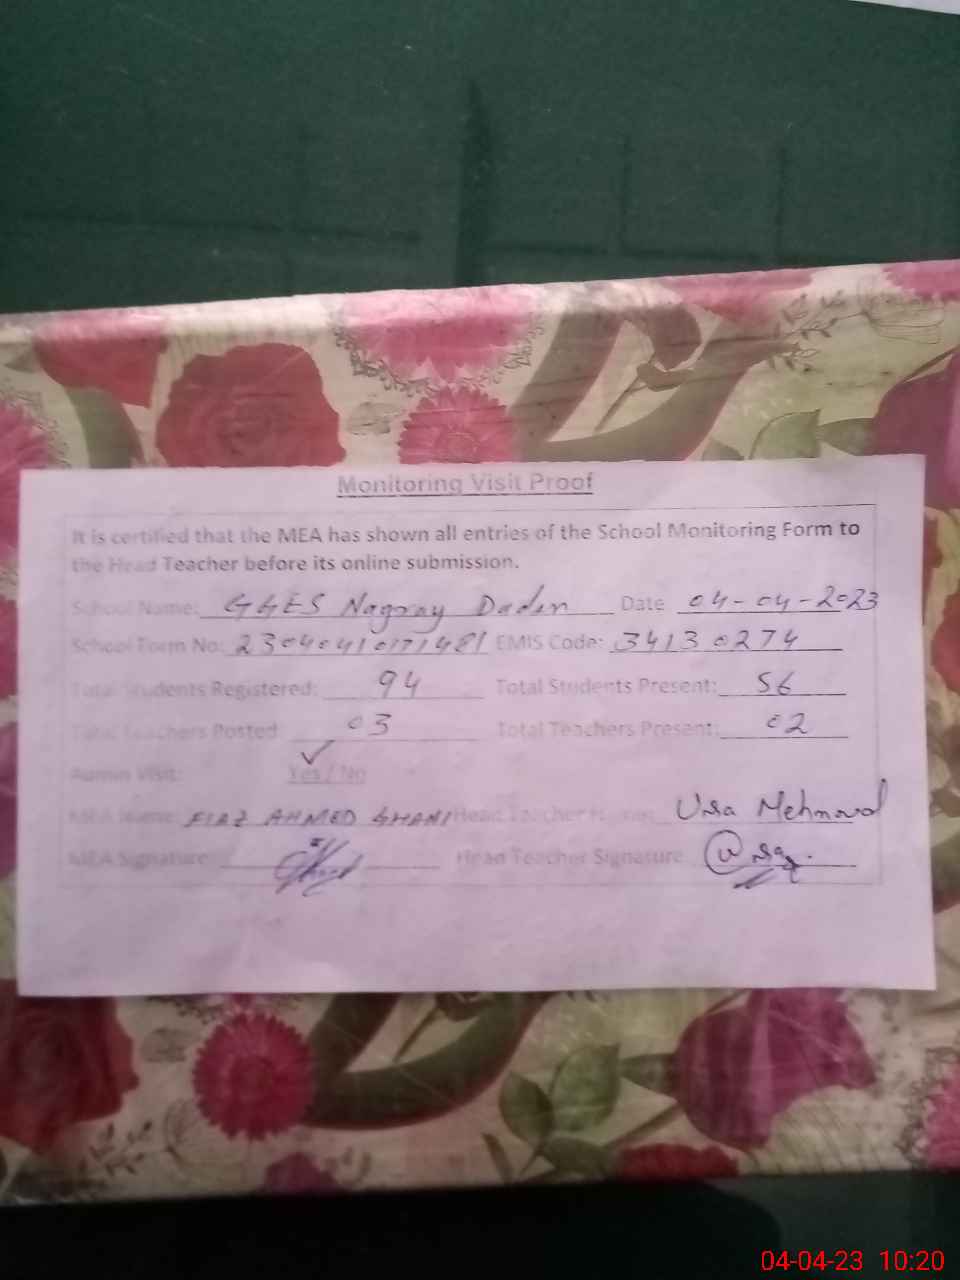 Monitoring Visit Proof
It is certified that the MEA has shown all entries of the School Monitoring Form to
the Head Teacher before its online submission.
School Name: GGES Nagray Daden Date 04-04-2023
School Form No: EMIS Code: 34130274
Total Students Registered: 94 Total Students Present: 56
Total Teachers Posted: 03 Total Teachers Present: 02
Admin Visit: Yes / No
MEA Name: FIAZ AHMED GHANI Head Teacher Name: Mehmood
MEA Signature Head Teacher Signature
04-04-23 10:20